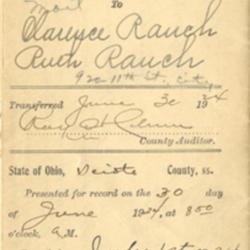 Mail
To
Clarence Rauch
Ruth Rauch
920 11th St. City
Transferred June 30 1924
County Auditor.
State of Ohio, Scioto County, ss.
Presented for record on the 30
day of
June 1924, at 8:00
o'clock, A.M.